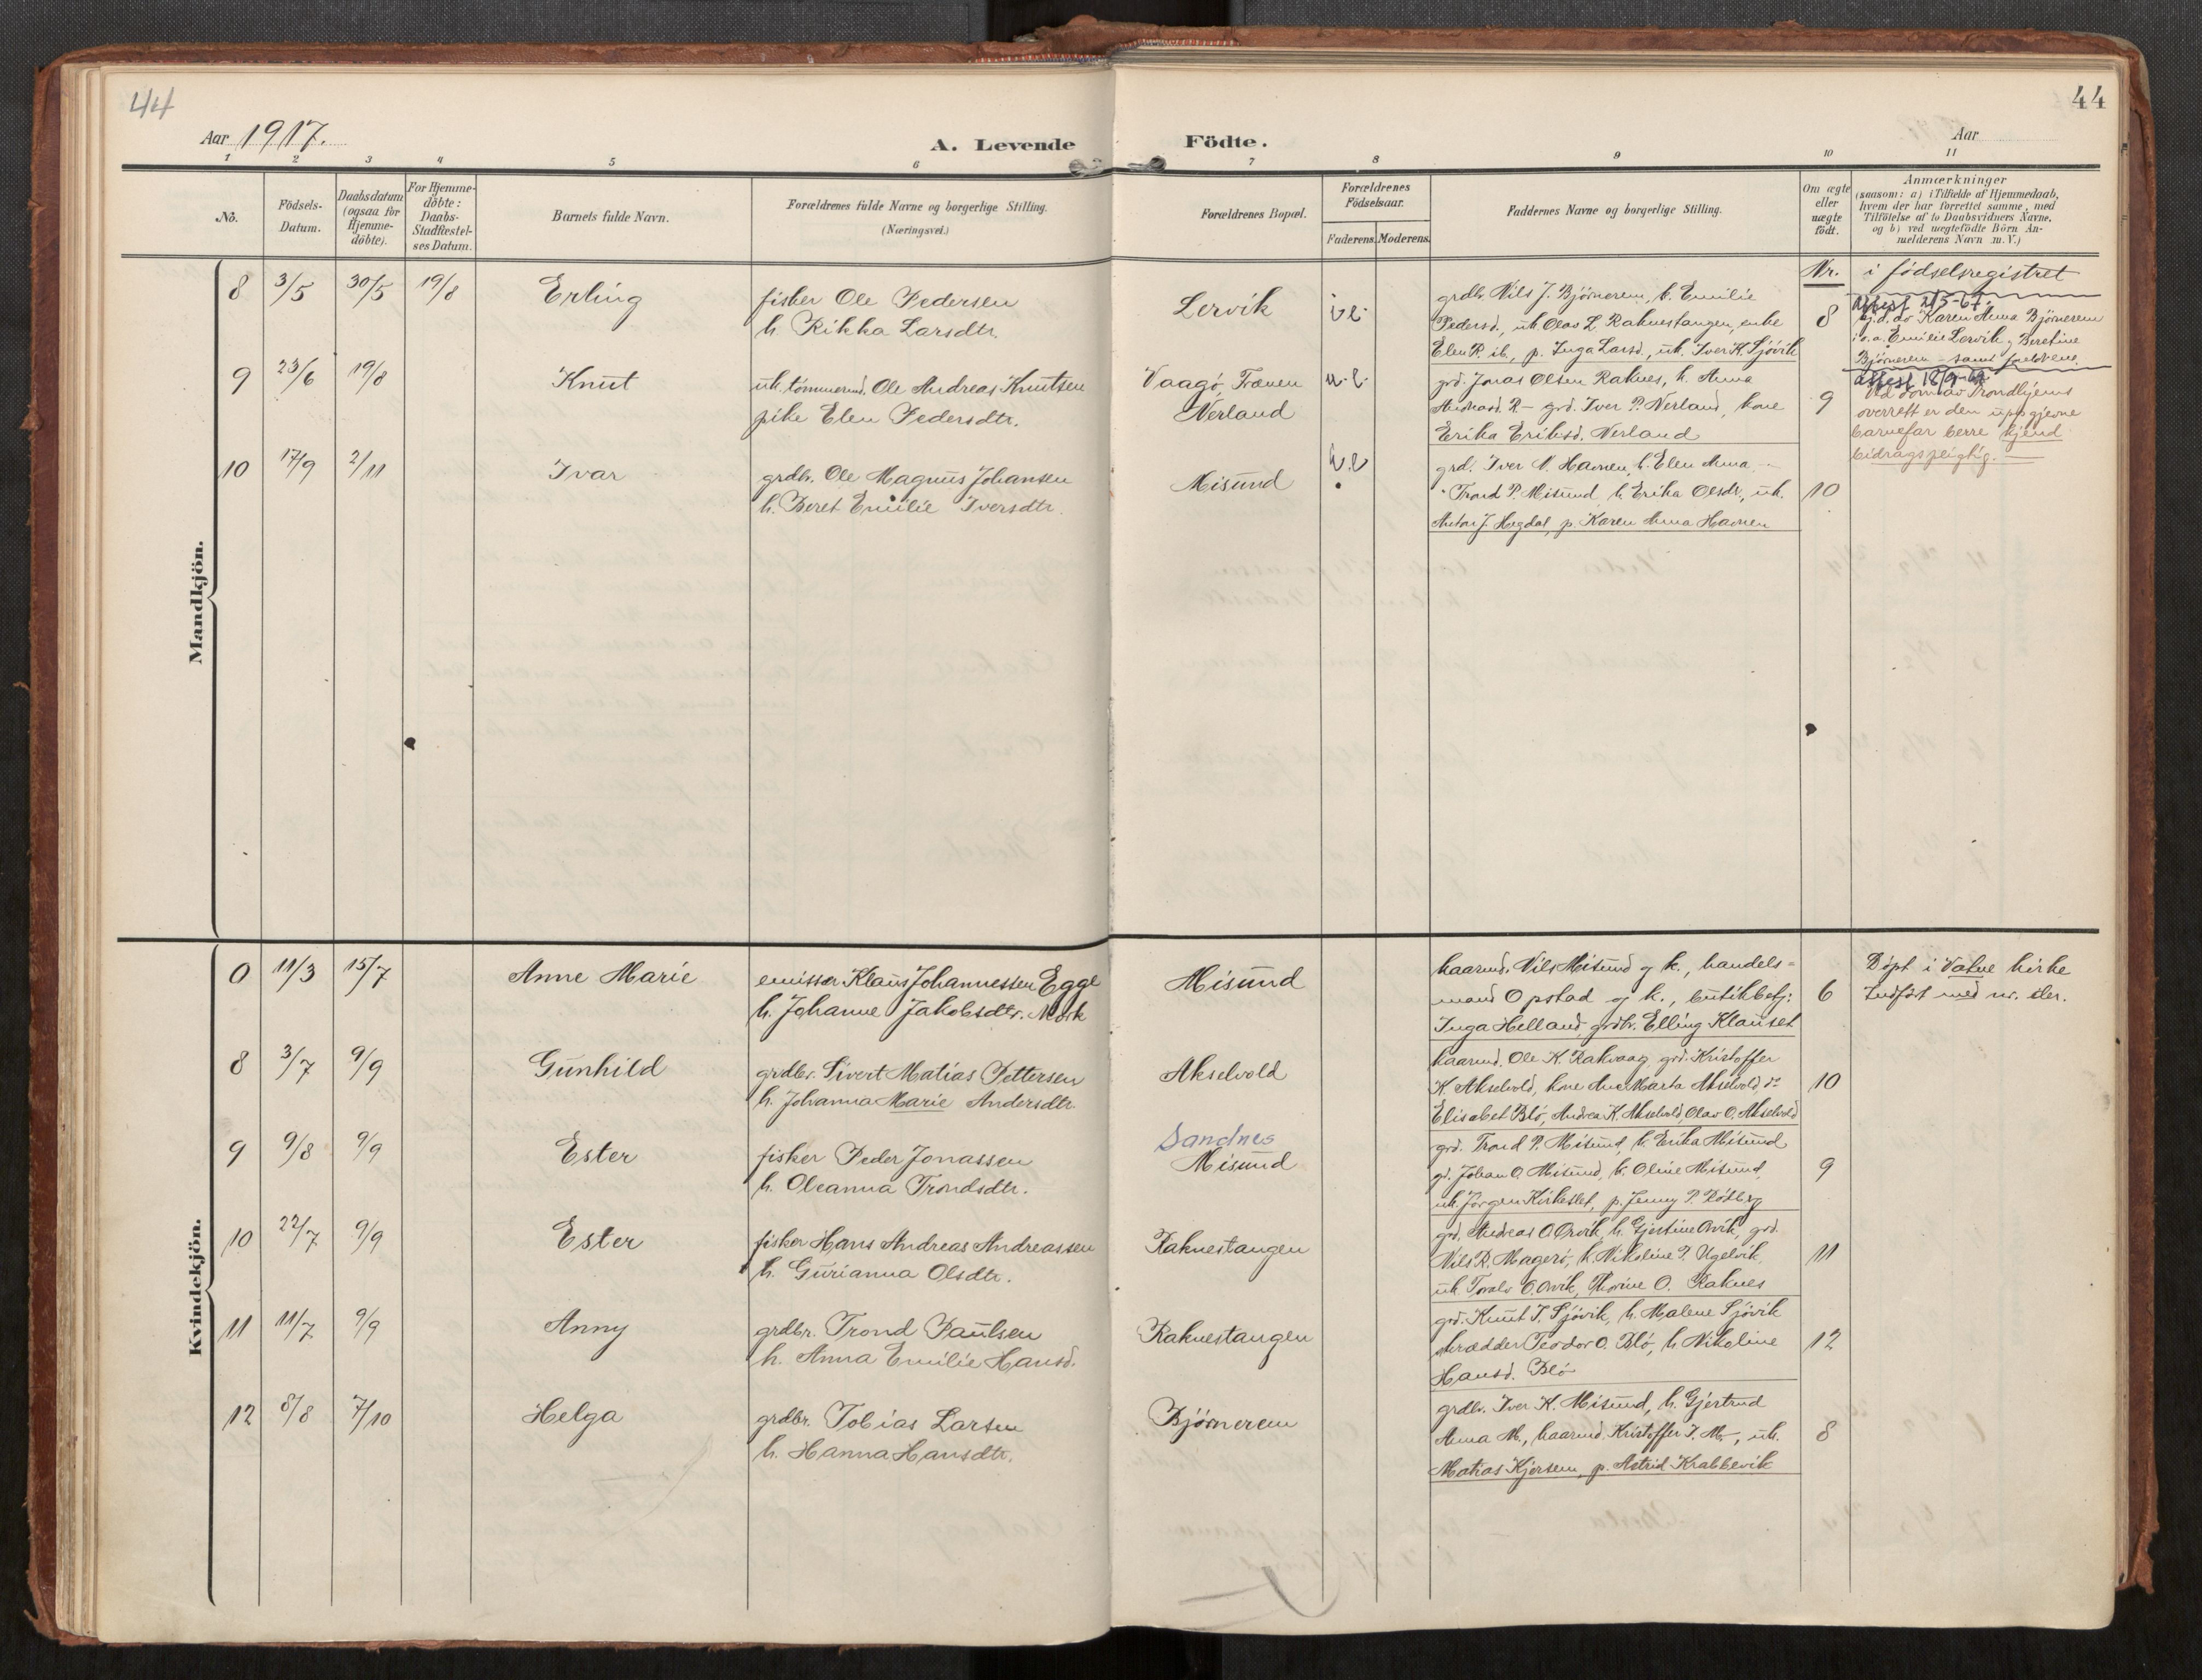 44
44
Aar 1917.
A. Levende Födte.
Aar
1 2 3 4 5 6 7 8 9 10 11
No.
Födsels-
Datum.
Daabsdatum
(ogsaa for
Hjemme-
döbte).
For Hjemme-
döbte:
Daabs-
Stadfæstel-
ses Datum.
Barnets fulde Navn.
Forældrenes fulde Navne og borgerlige Stilling.
(Næringsvei.)
Forældrenes Bopæl.
Forældrenes
Födselsaar.
Faderens. Moderens.
Faddernes Navne og borgerlige Stilling.
Om ægte
eller
uægte
födt.
Anmærkninger
(saasom: a) i Tilfælde af Hjemmedaab,
hvem der har forrettet samme, med
Tilföielse af to Daabsvidners Navne,
og b) ved uægtefödte Börn An-
melderens Navn m. V.)
Nr. i fødselsregistret
Mandkjön.
8 3/5 30/5 19/8 Erling
fisker Ole Pedersen
h. Rikka Larsdtr.
Lervik
grdbr. Nils J. Bjørnerem, h. Emilie
Pedersd., uk. Olav L. Raknestangen, enke
Elen P. ib., p. Inga Larsd., uk. Iver K. Sjövik
8
Attest 2/5-67.
hj.d. av Karen Anna Bjørnerem
i o.a. Emilie Lervik og Beretine
Bjørnerem - samt foreldrene.
9 23/6 19/8 Knut
uk. tömmermd. Ole Andreas Knutsen
pike Elen Pedersdtr.
Vaagö, Frænen
Nerland
u.e.
grd. Jonas Olsen Raknes, k. Anna
Andreasd. R- grd. Iver P. Nerland, kone
Erika Eriksd. Nerland
9
Attest 18/9-69
Ved dom av Trondhjems
overrett er den uppgjevne
barnefar berre kjend
bidragspligtig.
10 17/9 2/11 Ivar
grdbr. Ole Magnus Johansen
h. Beret Emilie Iversdtr.
Misund
grd. Iver N. Havnen, h. Elen Anna -
Trond P. Misund h. Erika Olsdr., uk.
Anton J. Hegdal, p. Karen Anna Havnen
10
Kvindekjön.
0 11/3 15/7 Anne Marie
emissær Klaus Johannessen Egge
h. Johanne Jakobsdtr. Mork
Misund
haarmd. Nils Misund og k., handels=
mand Opstad og k., butikbetj:
Inga Helland, grdbr. Elling Klauset
6
Döpt i Vatne kirke
Indfört med nr. der.
8 3/7 9/9 Gunhild
grdbr. Sivert Matias Pettersen
h. Johanna Marie Andersdtr.
Akselvold
haarmd. Ole K. Rakvaag, grd. Kristoffer
K. Akselvold, kone Ane Marta Akselvold do
Elisabet Blö, Andrea K. Akselvold, Olav O. Akselvold
10
9 9/8 9/9 Ester
fisker Peder Jonassen
h. Oleanna Trondsdtr.
Sandnes
Misund
grd. Trond P. Misund, h. Erika Misund
gd. Johan O. Misund, k. Oline Misund,
uk. Jörgen Kirkeslet, p. Jenny P. Rödberg
9
10 22/7 9/9 Ester
fisker Hans Andreas Andreassen
h. Gurianna Olsdtr.
Raknestangen
grd. Andreas O. Orvik, h. Gjertine Orvik, grd.
Nils R. Magerö, k. Nikoline P. Ugelvik,
uk. Toralv O. Orvik, Thorine O. Raknes
11
11 11/7 9/9 Anny
grdbr. Trond Paulsen
h. Anna Emilie Hansd.
Raknestangen
grd. Knut I. Sjövik, h. Malene Sjövik
skrædder Teodor O. Blö, h. Nikoline
Hansd. Blö
12
12 8/8 7/10 Helga
grdbr. Tobias Larsen
h. Hanna Hansdtr.
Bjørnerem
grdbr. Iver K. Misund, h. Gjertrud
Anna M., haarmd. Kristoffer I. M-, uk.
Matias Kjersem, p. Astrid Krabbevik
8